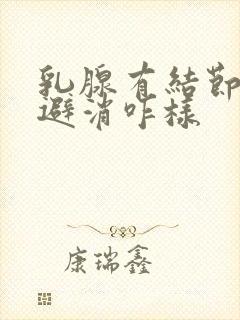 乳腺有結節
避消咋樣
康瑞鑫